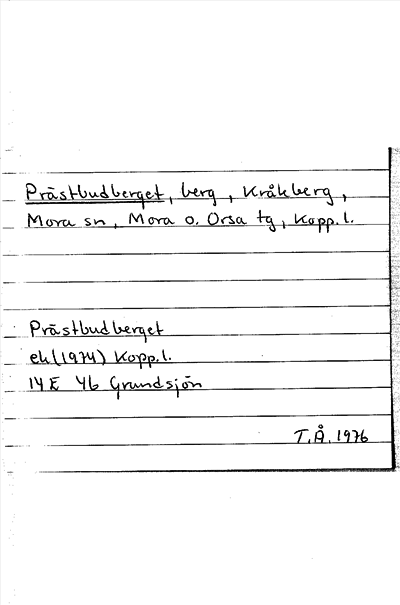 Prästbudberget, berg, Kråkberg,
Mora sn, Mora o. Orsa tg, Kopp.l.
Prästbudberget
ek(1974) Kopp.l.
14E 4b Grundsjön
T.Å.1976